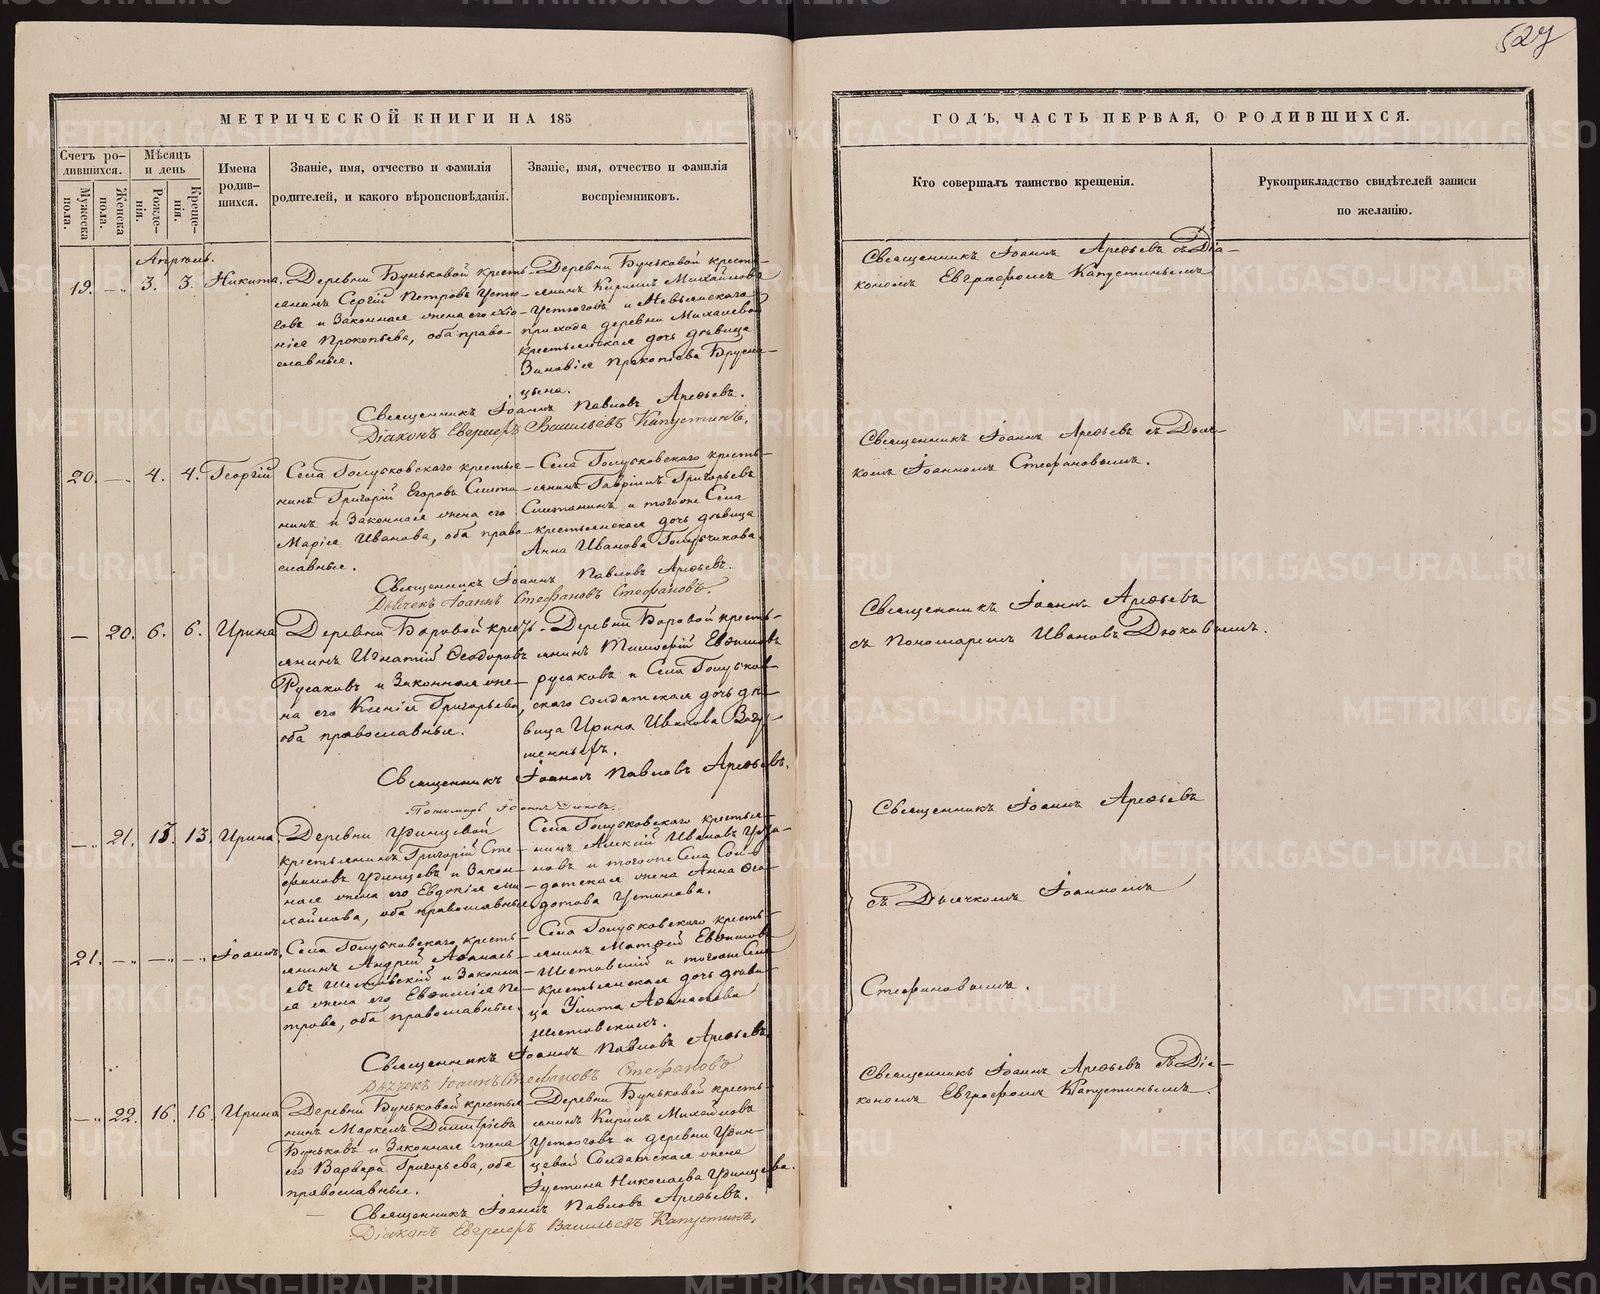 527
МЕТРИЧЕСКОЙ КНИГИ НА 185
ГОДЪ, ЧАСТЬ ПЕРВАЯ, О РОДИВШИХСЯ.
Счетъ ро-
дившихся.
Мѣсяцъ
и день
Мужеска
пола.
Женска
пола.
Рожде-
нія.
Креще-
нія.
Имена
родив-
шихся.
Званіе, имя, отчество и фамилія
родителей, и какого вѣроисповѣданія.
Званіе, имя, отчество и фамилія
воспріемниковъ.
Кто совершалъ таинство крещенія.
Рукоприкладство свидѣтелей записи
по желанію.
Апрѣль.
19. 3. 3. Никита.
Деревни Буньковой кресть-
янинъ Сергій Петровъ Устю-
говъ и законная жена его
Прокопьева, оба право-
славные.
Деревни Буньковой кресть-
янинъ Кирилъ Михайловъ
Устюговъ и Невьянскаго
прихода деревни Михалевой
крестьянская дочь дѣвица
Зиновія Прокопіева Брусни-
цына.
Священникъ Іоаннъ Павловъ Арефьевъ.
Діаконъ Евграфъ Васильевъ Капустинъ.
Священникъ Іоаннъ Арефьевъ съ Діа-
кономъ Евграфомъ Капустинымъ
20. 4. 4. Георгій
Села Голубковскаго крестья-
нинъ Григорій Егоровъ Смета-
нинъ и законная жена его
Марія Иванова, оба право-
славные.
Села Голубковскаго кресть-
янинъ Гавріилъ Григорьевъ
Сметанинъ и тогоже Села
крестьянская дочь дѣвица
Анна Иванова Голубчикова.
Священникъ Іоаннъ Павловъ Арефьевъ.
Дьячекъ Іоаннъ Стефановъ Стефановъ.
Священникъ Іоаннъ Арефьевъ съ Дьяч-
комъ Іоанномъ Стефановымъ.
20. 6. 6. Ирина
Деревни Боровой кресть-
янинъ Игнатій Ѳеодоровъ
Русаковъ и законная же-
на его Ксенія Григорьева,
оба православные.
Деревни Боровой кресть-
янинъ Тимофій Евѳимовъ
Русаковъ и Села Голубков-
скаго солдатская дочь дѣ-
вица Ирина Иванова
Священникъ Іоаннъ Павловъ Арефьевъ.
Пономарь Іоаннъ Дюковъ.
Священникъ Іоаннъ Арефьевъ
съ Пономаремъ Иваномъ Дюковымъ.
21. 13. 13. Ирина
Деревни Удинцевой
крестьянинъ Григорій Сте-
фановъ Удинцевъ и закон-
ная жена его Евдокія Ми-
хайлова, оба православные
Села Голубковскаго крестья-
нинъ Алексій Ивановъ
и тогоже Села Сол-
датская жена Анна Ѳео-
дотова Устинова.
Священникъ Іоаннъ Арефьевъ
съ Дьячкомъ Іоанномъ
Стефановымъ.
21. Іоаннъ.
Села Голубковскаго кресть-
янинъ Андрей Аѳанась-
евъ Шестовскій и законна-
я жена его Евѳимія Пе-
трова, оба православные.
Села Голубковскаго кресть-
янинъ Матѳей Евѳимовъ
Шестовскій и тогоже Села
крестьянская дочь дѣви-
ца Улита Аѳанасьева
Шестовскихъ.
Священникъ Іоаннъ Павловъ Арефьевъ
Дьячекъ Іоаннъ Стефановъ Стефановъ
22. 16. 16. Ирина
Деревни Буньковой крестья-
нинъ Маркелъ Димитріевъ
Буньковъ и законная жена
его Варвара Григорьева, оба
православные.
Деревни Буньковой кресть-
янинъ Кирилъ Михайловъ
Устюговъ и деревни Удин-
цевой Солдатская жена
Іустина Николаева Удинцева.
Священникъ Іоаннъ Павловъ Арефьевъ.
Діаконъ Евграфъ Васильевъ Капустинъ.
Священникъ Іоаннъ Арефьевъ съ Діа-
кономъ Евграфомъ Капустинымъ.
METRIKI.GASO-URAL.RU